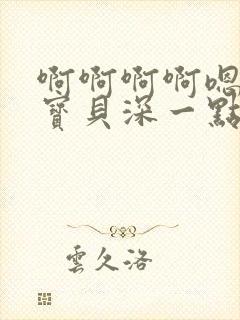 啊啊啊啊嗯
寶貝深一點
雲久洛